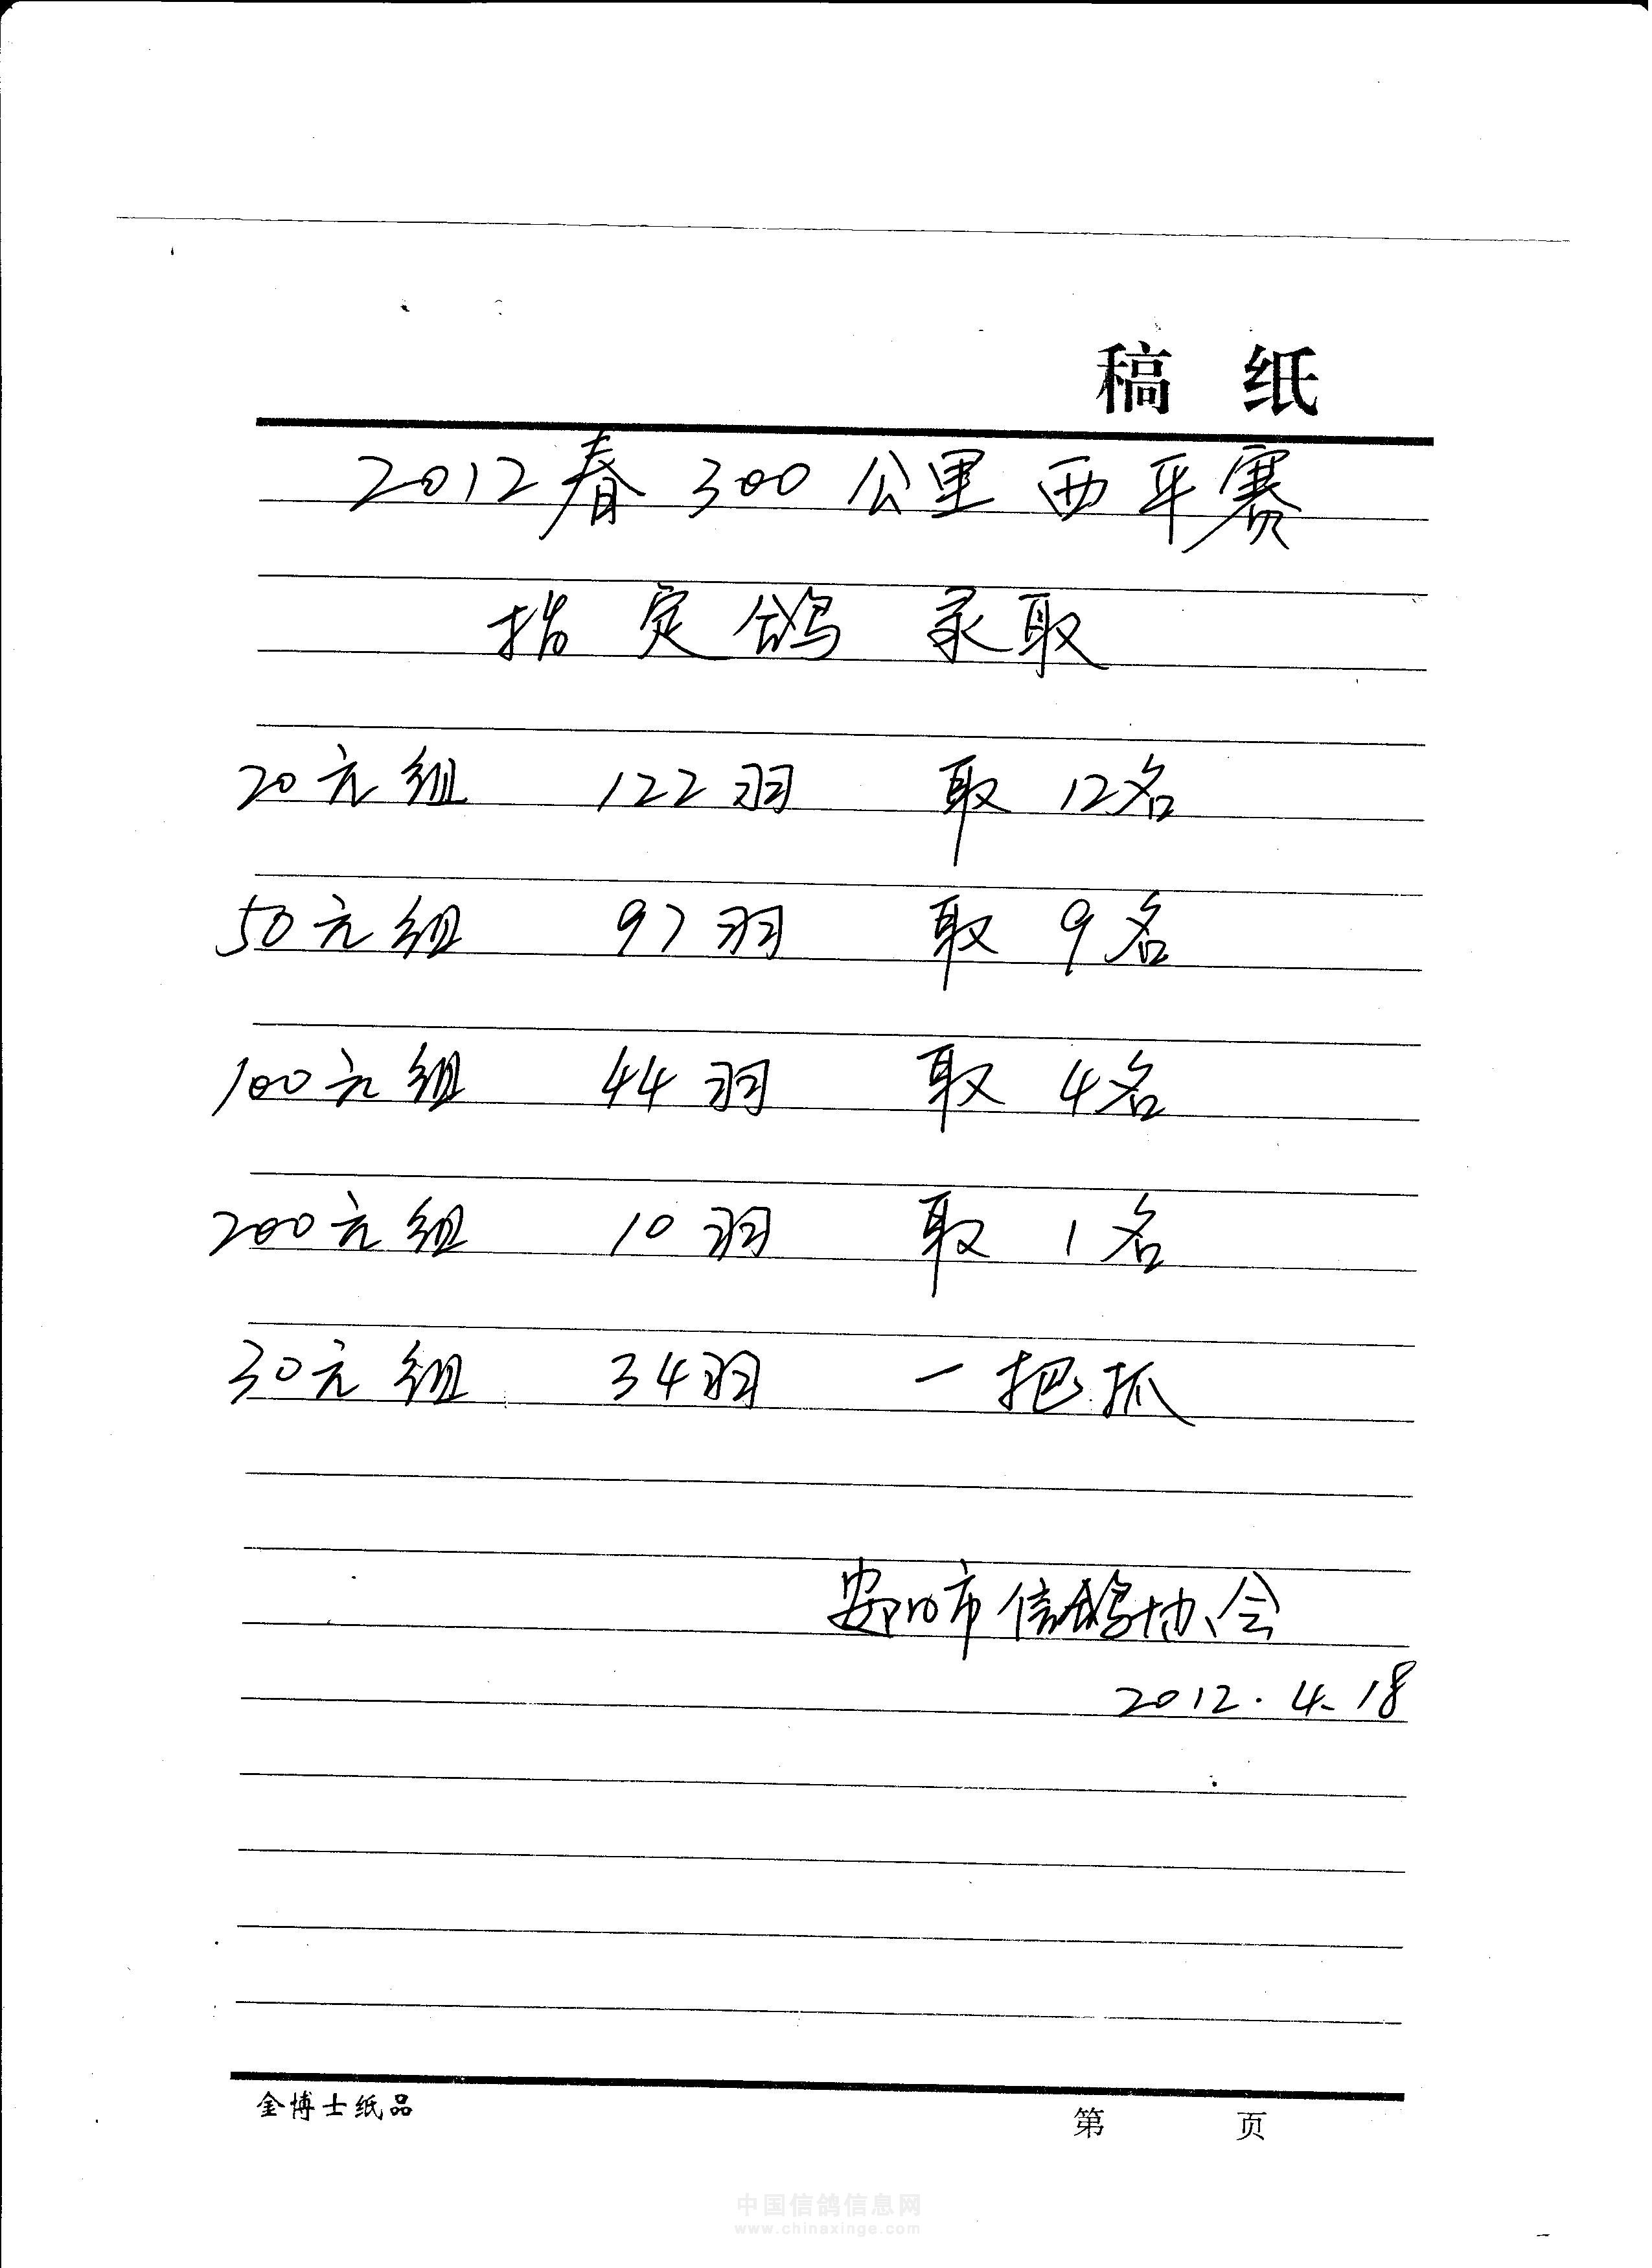 稿 纸
2012春 300公里 西平赛
指定鸽 录取
20元组 122羽 取 12名
50元组 97羽 取 9名
100元组 44羽 取 4名
200元组 10羽 取 1名
30元组 34羽 一把抓
安阳市信鸽协会
2012.4.18
金博士纸品 第 页
中国信鸽信息网
www.chinaxinge.com